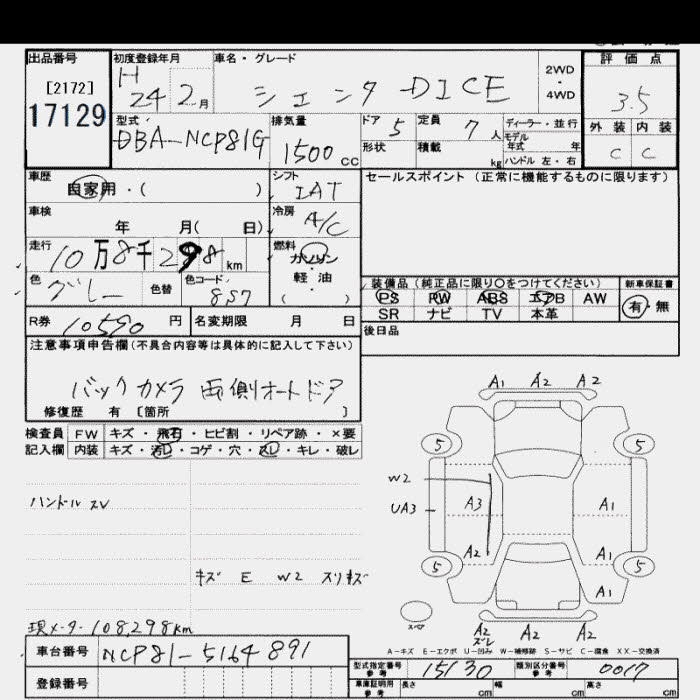 出品番号 初度登録年月 車名・グレード 評価点
[2172] H 24 2月 シエンタ DICE 2WD・4WD 3.5
17129 型式 排気量 ドア 5 定員 7人 ディーラー・並行 外装 内装
DBA-NCP81G 1500cc 形状 積載 kg モデル年式 年 C C
ハンドル 左・右
車歴 自家用・( ) シフト IAT セールスポイント(正常に機能するものに限ります)
車検 年 月( 日) 冷房 A/C
走行 10万8千298km 燃料 ガソリン
軽・油
( )
色 グレー 色替 色コード 8S7 装備品(純正品に限り○をつけてください) 新車保証書
PS PW ABS エアB AW 有・無
R券 10590円 名変期限 月 日 SR ナビ TV 本革
注意事項申告欄(不具合内容等は具体的に記入して下さい) 後日品
バックカメラ 両側オートドア
修復歴 有 [箇所 ]
検査員 FW キズ・飛石・ヒビ割・リペア跡・×要
記入欄 内装 キズ・汚レ・コゲ・穴・スレ・キレ・破レ
A1 A2 A2
5 5
W2
UA3 A3 A1
A2 A1
5 5
A1
ハンドルスレ
キズ E W2 スリキズ
スペア A2 A2 A2
ズレ
現メーター108,298km
A-キズ E-エクボ U-凹み W-補修跡 S-サビ C-腐食 XX-交換済
車台番号 NCP81-5164891
型式指定番号 参考 15130 類別区分番号 参考 0017
登録番号 車庫証明用 参考 長さ cm 幅 cm 高さ cm